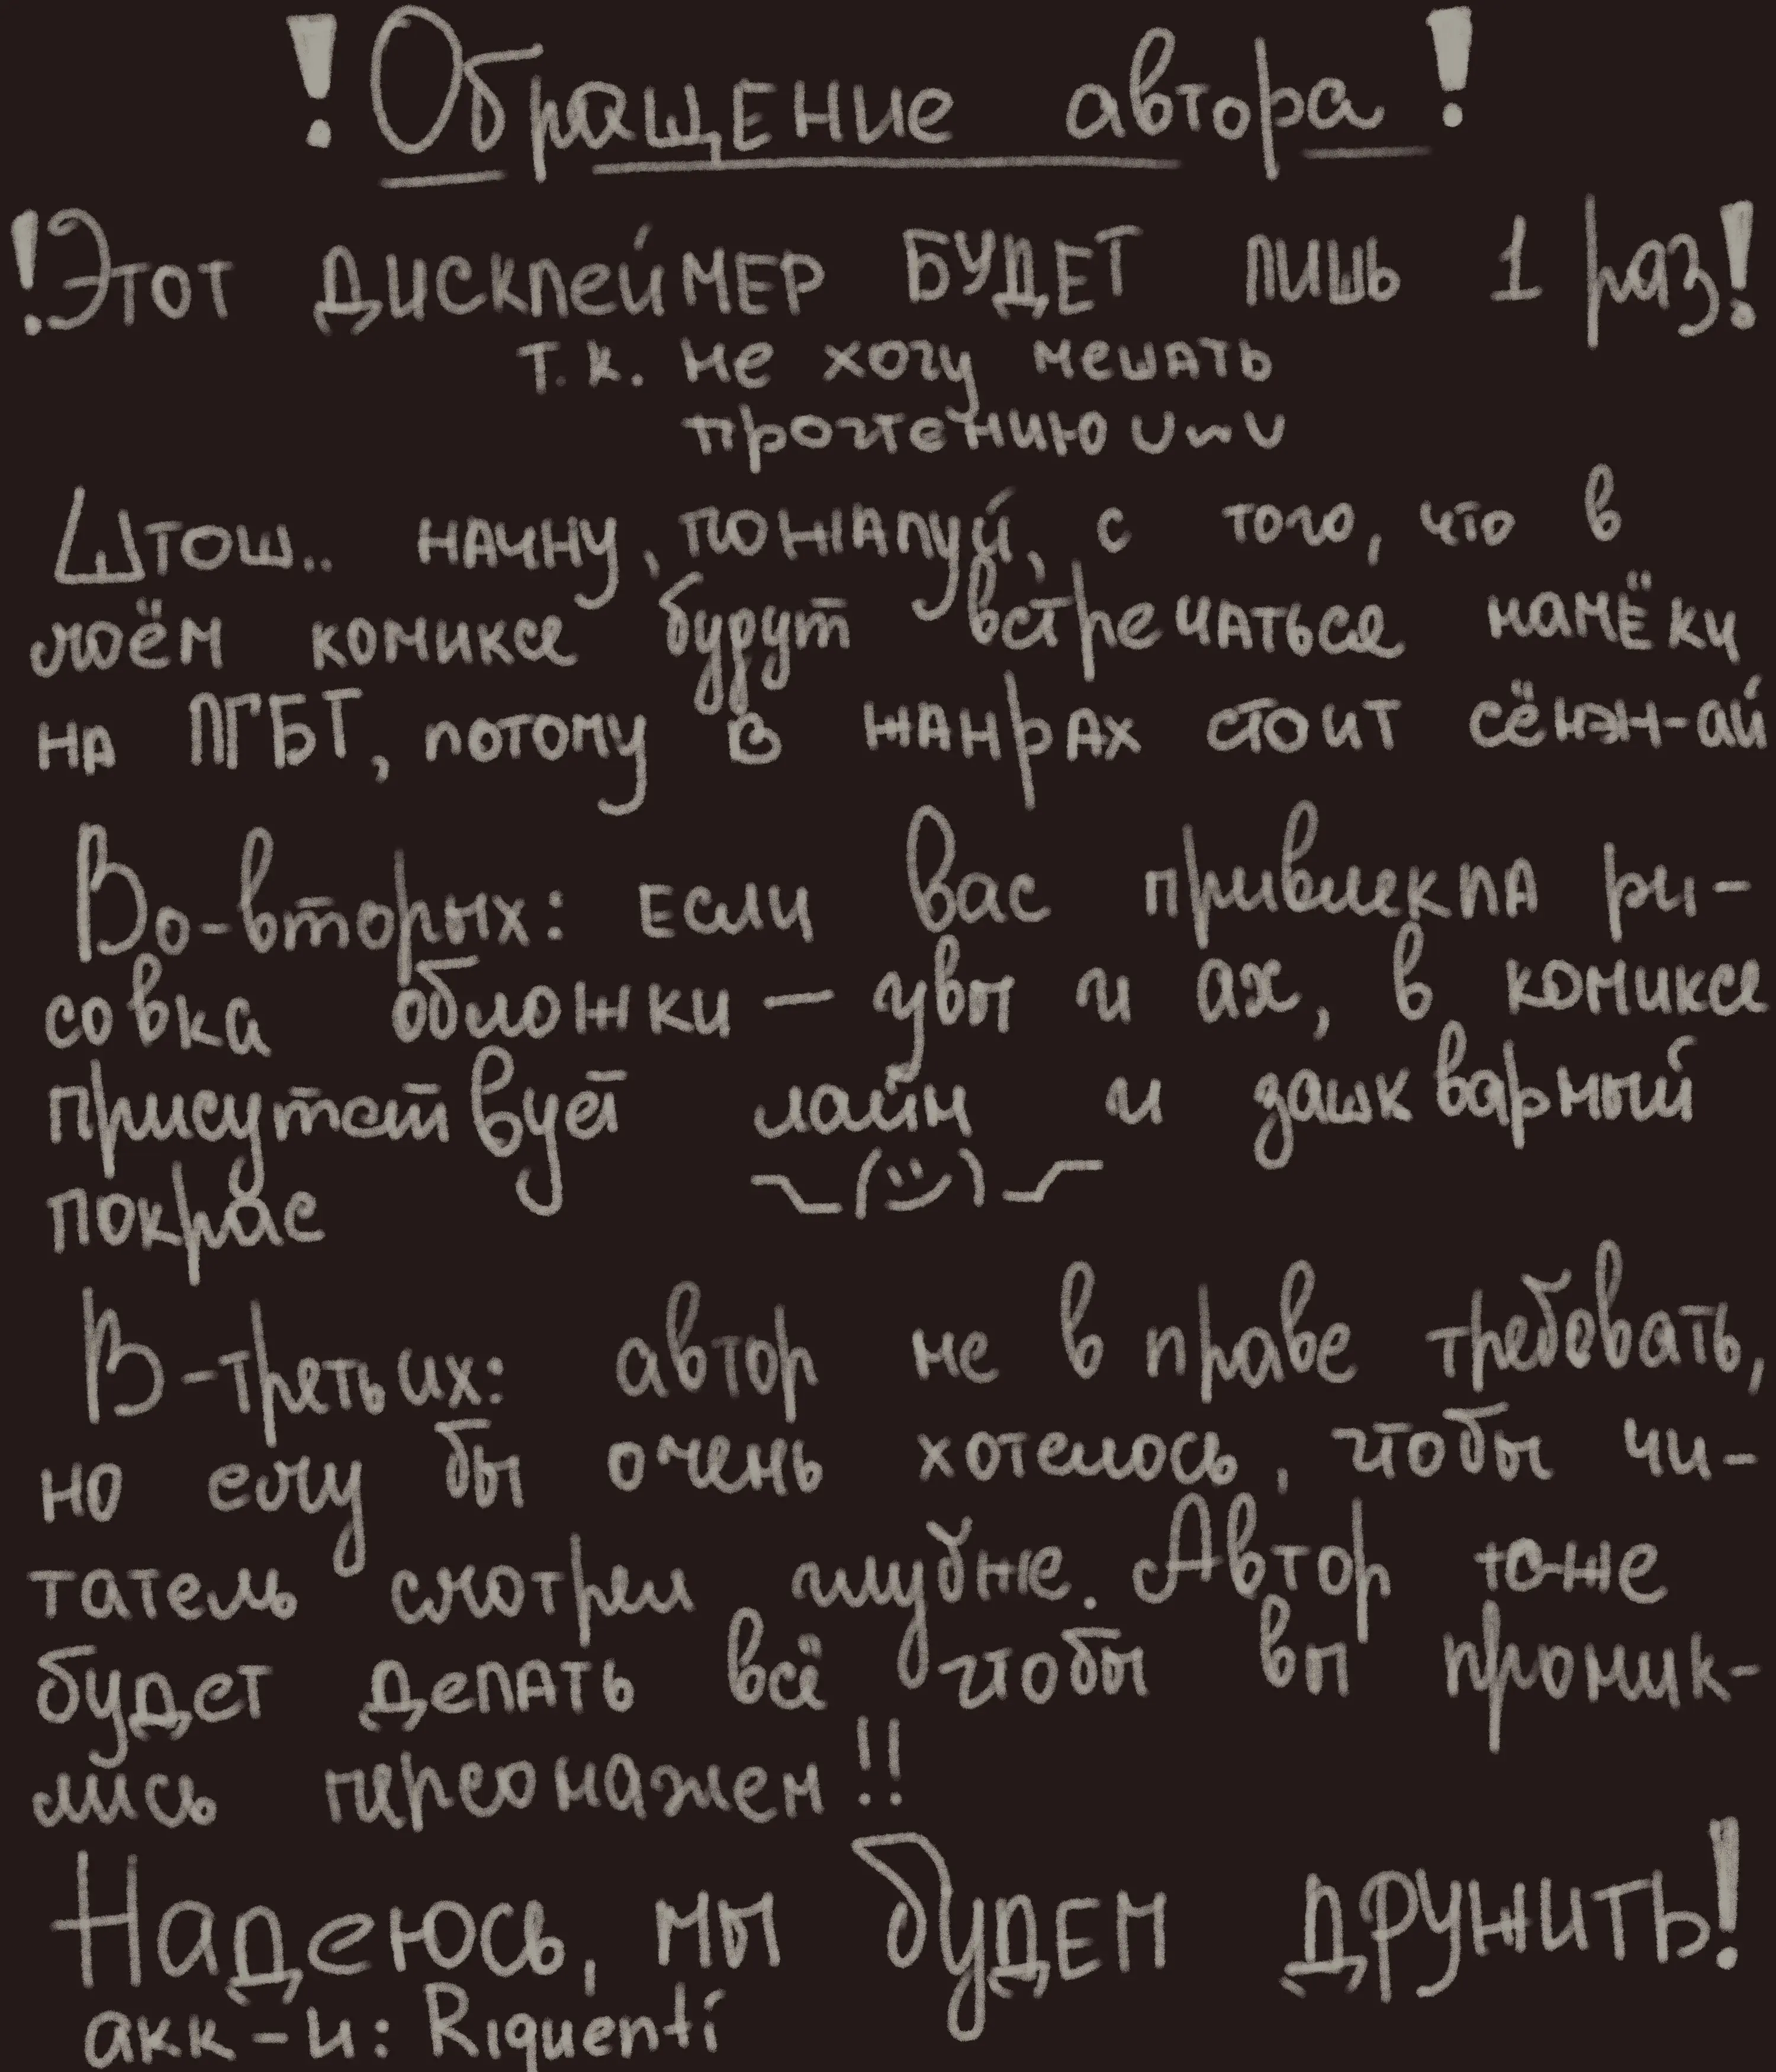 ! Обращение автора !
! Этот дисклеймер будет лишь 1 раз!
т.к. не хочу мешать
прочтению UwU
Штош.. начну, пожалуй, с того, что в
моём комиксе будут встречаться намёки
на ЛГБТ, потому в жанрах стоит сёнэн-ай
Во-вторых: если вас привлекла ри-
совка обложки — увы и ах, в комиксе
присутствует лайн и зашкварный
покрас ¯\_(ツ)_/¯
В-третьих: автор не в праве требовать,
но ему бы очень хотелось, чтобы чи-
татель смотрел глубже. Автор тоже
будет делать всё чтобы вы проник-
лись персонажем!!
Надеюсь, мы будем дружить!
акк-и: Riquenti